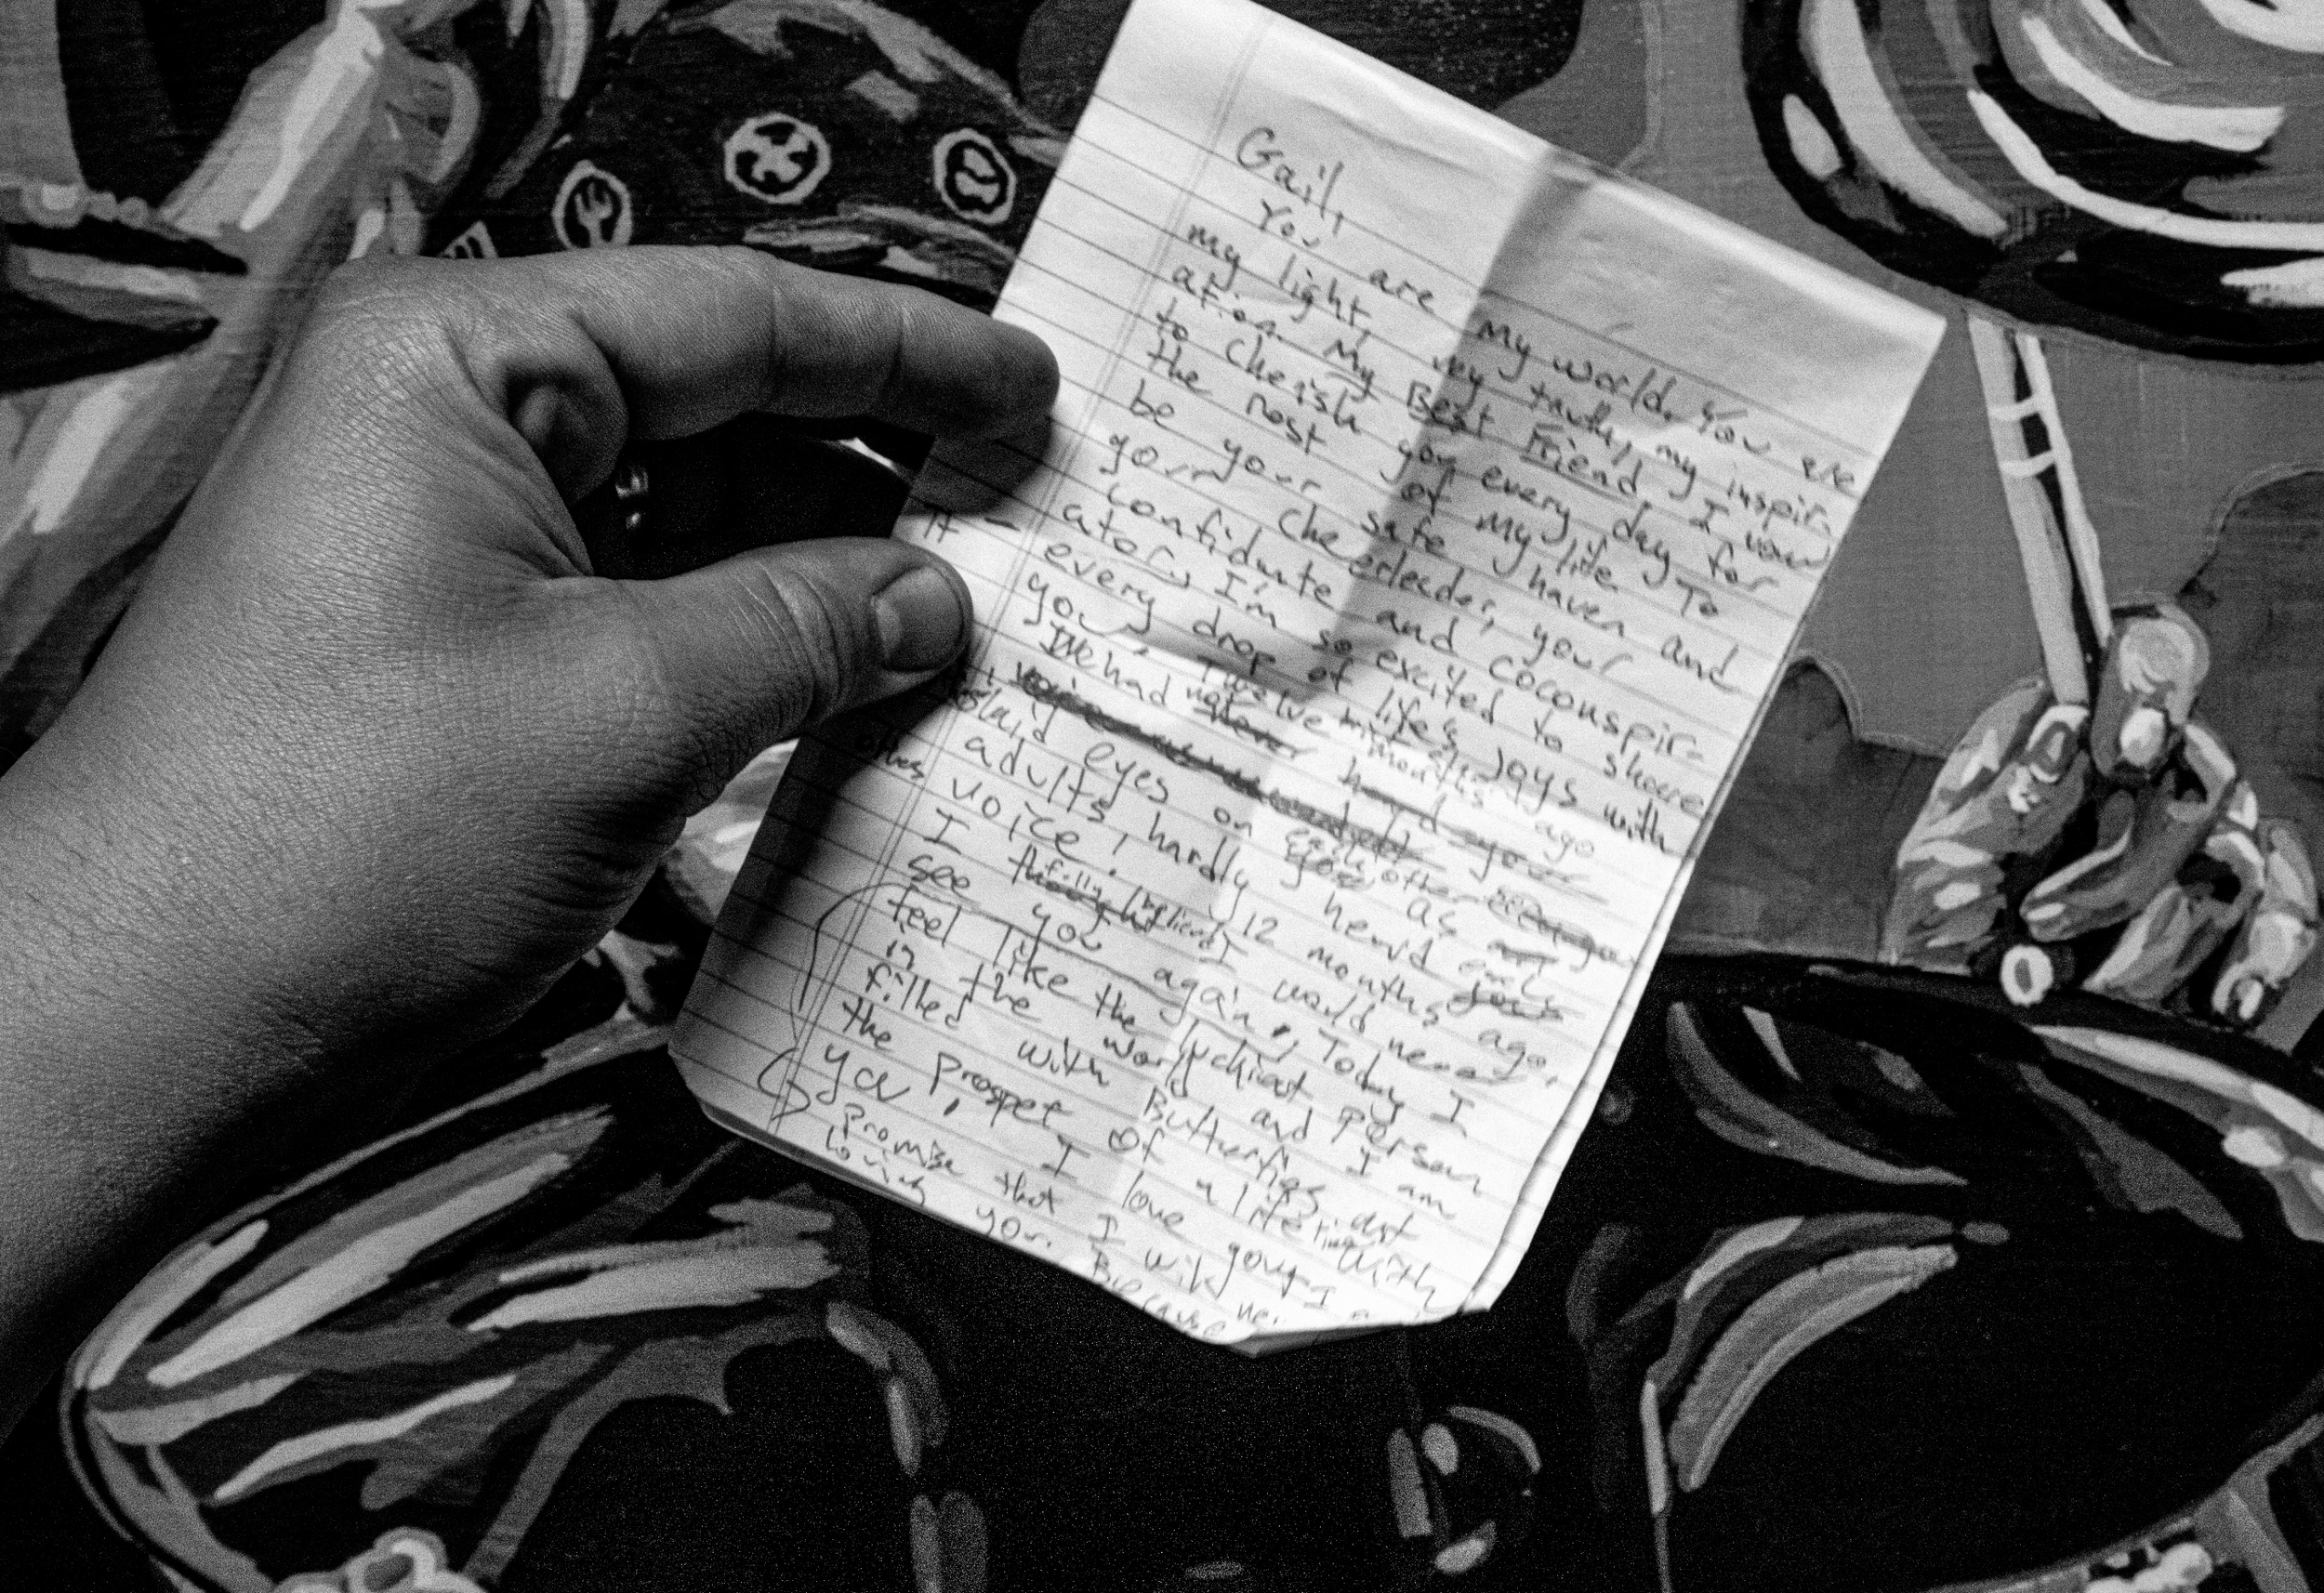 Gail,
You are my world. You are
my light, my truth, my inspir-
ation. My Best Friend. I vow
to cherish you every day for
the rest of my life. To
be your safe haven and
your cheerleader, your
confidante and coconspir-
ator. I'm so excited to share
every drop of life's joys with
you.
Twelve months ago
We had not
laid eyes on each other as
adults, hardly heard
voice. 12 months ago,
I fully believed I would never
see you again. Today I
feel like the luckiest person
in the world and I am
filled with Butterflies at
the prospect of a lifetime with
you. I love you. I
promise that I will
loving you. Because